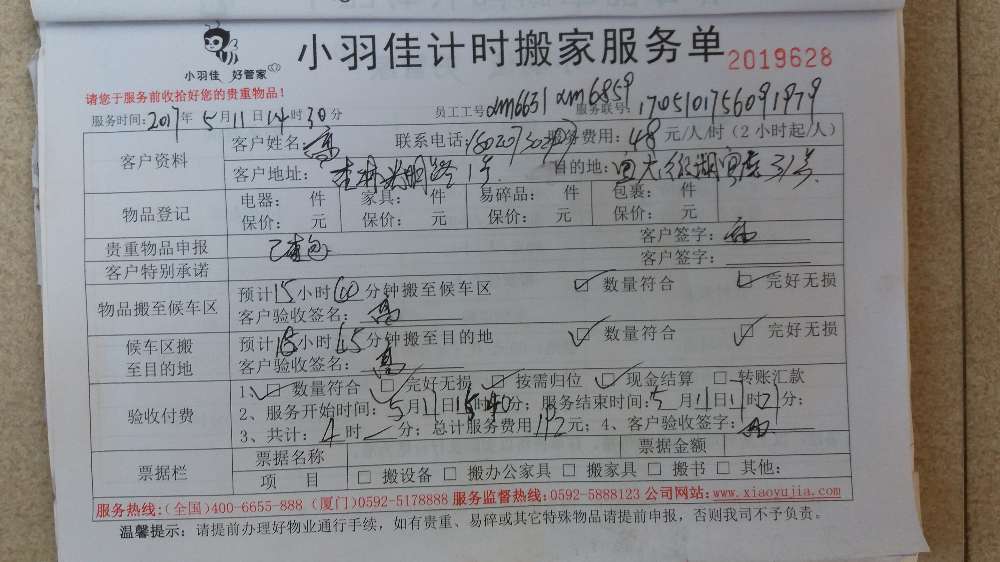 小羽佳计时搬家服务单
2019628
小羽佳 好管家
请您于服务前收拾好您的贵重物品!
员工工号: xm6631 xm6859 服务联号: 1705101756091979
服务时间: 2017年5月11日14时30分
客户资料
客户姓名: 高 联系电话: 费用: 48元/人/时(2小时起/人)
客户地址: 杏林 1号 目的地: 31号
物品登记
电器: 件 家具: 件 易碎品: 件 包裹: 件
保价: 元 保价: 元 保价: 元 保价: 元
贵重物品申报 已 包 客户签字:
客户特别承诺 客户签字:
物品搬至候车区
预计15小时00分钟搬至候车区 数量符合 完好无损
客户验收签名: 高
候车区搬至目的地
预计18小时 分钟搬至目的地 数量符合 完好无损
客户验收签名: 高
验收付费
1、□ 数量符合 □ 完好无损 □ 按需归位 □ 现金结算 □ 转账汇款
2、服务开始时间: 5月11日15时 分; 服务结束时间: 5月11日 时 分;
3、共计: 4时 分; 总计服务费用192元; 4、客户验收签字:
票据栏
票据名称 票据金额
项 目 □ 搬设备 □ 搬办公家具 □ 搬家具 □ 搬书 □ 其他:
服务热线:(全国)400-6655-888 (厦门)0592-5178888 服务监督热线:0592-5888123 公司网站:www.xiaoyujia.com
温馨提示: 请提前办理好物业通行手续, 如有贵重、易碎或其它特殊物品请提前申报, 否则我司不予负责。